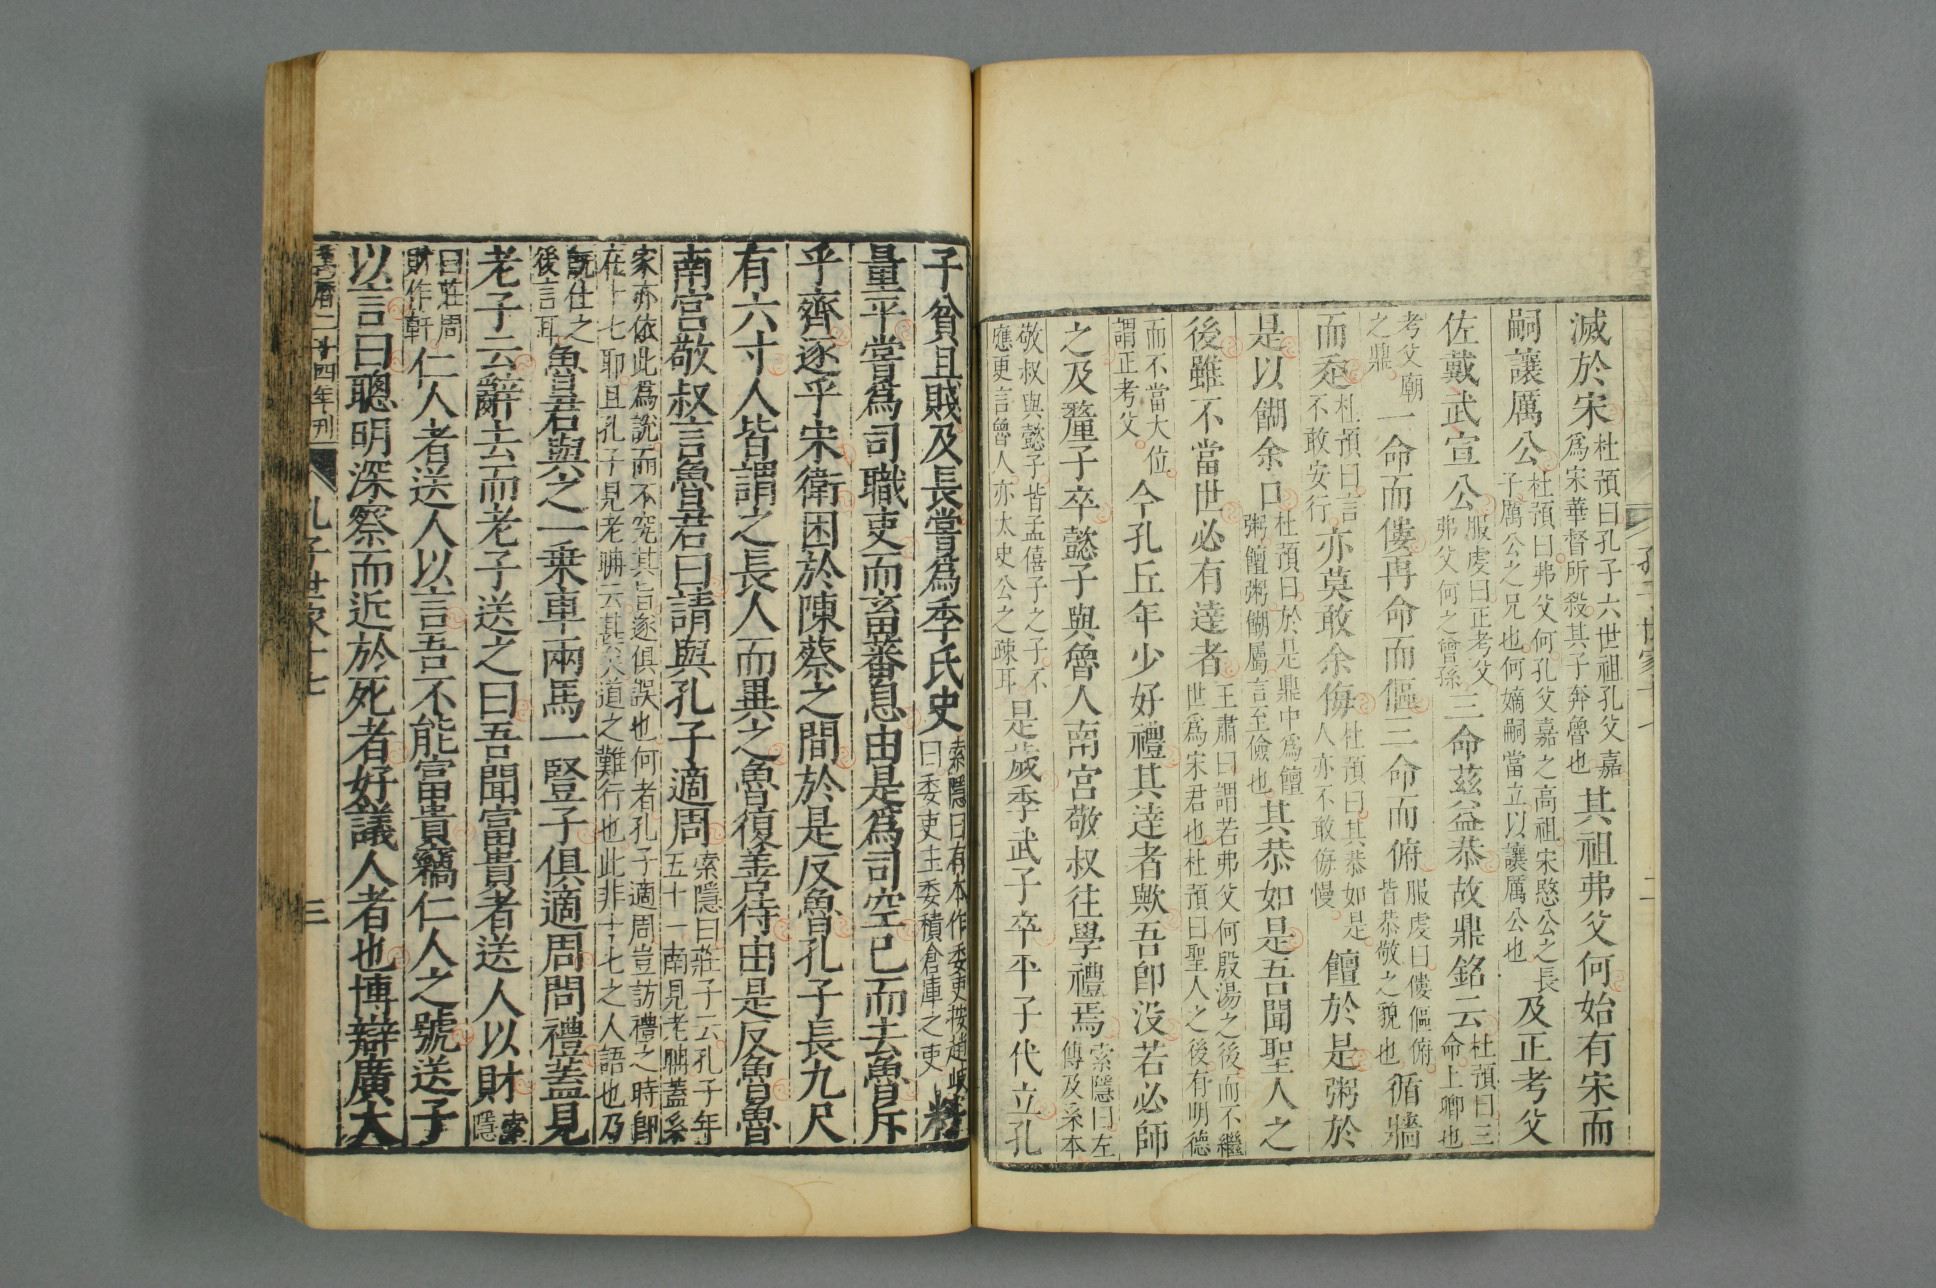 滅於宋杜預曰孔子六世祖孔父嘉為宋華督所殺其子奔魯也其祖弗父何始有宋而
嗣讓厲公杜預曰弗父何孔父嘉之高祖宋愍公之長子厲公之兄也何嫡嗣當立以讓厲公也及正考父
佐戴武宣公服虔曰正考父弗父何之曾孫三命茲益恭故鼎銘云杜預曰三命上卿也
考父廟之鼎一命而僂再命而傴三命而俯服虔曰僂傴俯皆恭敬之貌也循牆
而走杜預曰言不敢安行亦莫敢余侮杜預曰其恭如是人亦不敢侮慢饘於是粥於
是以餬余口杜預曰於是鼎中為饘粥饘粥餬屬言至儉也其恭如是吾聞聖人之
後雖不當世必有達者王肅曰謂若弗父何殷湯之後而不繼世為宋君也杜預曰聖人之後有明德
而不當大位謂正考父今孔丘年少好禮其達者歟吾卽没若必師
之及釐子卒懿子與魯人南宮敬叔往學禮焉索隱曰左傳及系本
敬叔與懿子皆孟僖子之子不應更言魯人亦太史公之疎耳是歲季武子卒平子代立孔
子貧且賤及長嘗為季氏史索隱曰有本作委吏按趙岐曰委吏主委積倉庫之吏料
量平嘗為司職吏而畜蕃息由是為司空已而去魯斥
乎齊逐乎宋衛困於陳蔡之間於是反魯孔子長九尺
有六寸人皆謂之長人而異之魯復善待由是反魯魯
南宮敬叔言魯君曰請與孔子適周索隱曰莊子云孔子年五十一南見老聃蓋系
家亦依此為說而不究其旨遂俱誤也何者孔子適周豈訪禮之時卽在十七耶且孔子見老聃云甚矣道之難行也此非十七之人語也乃
既仕之後言耳魯君與之一乘車兩馬一豎子俱適周問禮蓋見
老子云辭去而老子送之曰吾聞富貴者送人以財索隱
曰莊周財作軒仁人者送人以言吾不能富貴竊仁人之號送子
以言曰聰明深察而近於死者好議人者也博辯廣大
萬曆二十四年刊 孔子世家十七 三